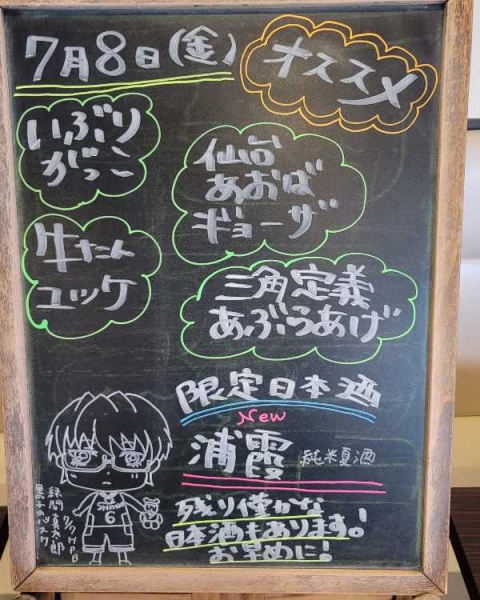 7月8日(金)
オススメ
いぶり
がっこ
仙台
あおば
ギョーザ
牛たん
ユッケ
三角定義
あぶらあげ
限定日本酒
New
浦霞 純米夏酒
残り僅かな
日本酒もあります!
お早めに!
緑間真太郎
7/7 HPB
黒子のバスケ
SHUTOKU
6